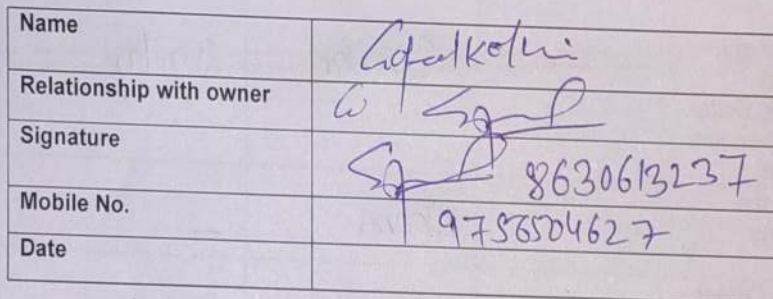 Name
Relationship with owner
Signature 8630613237
Mobile No. 9756504627
Date